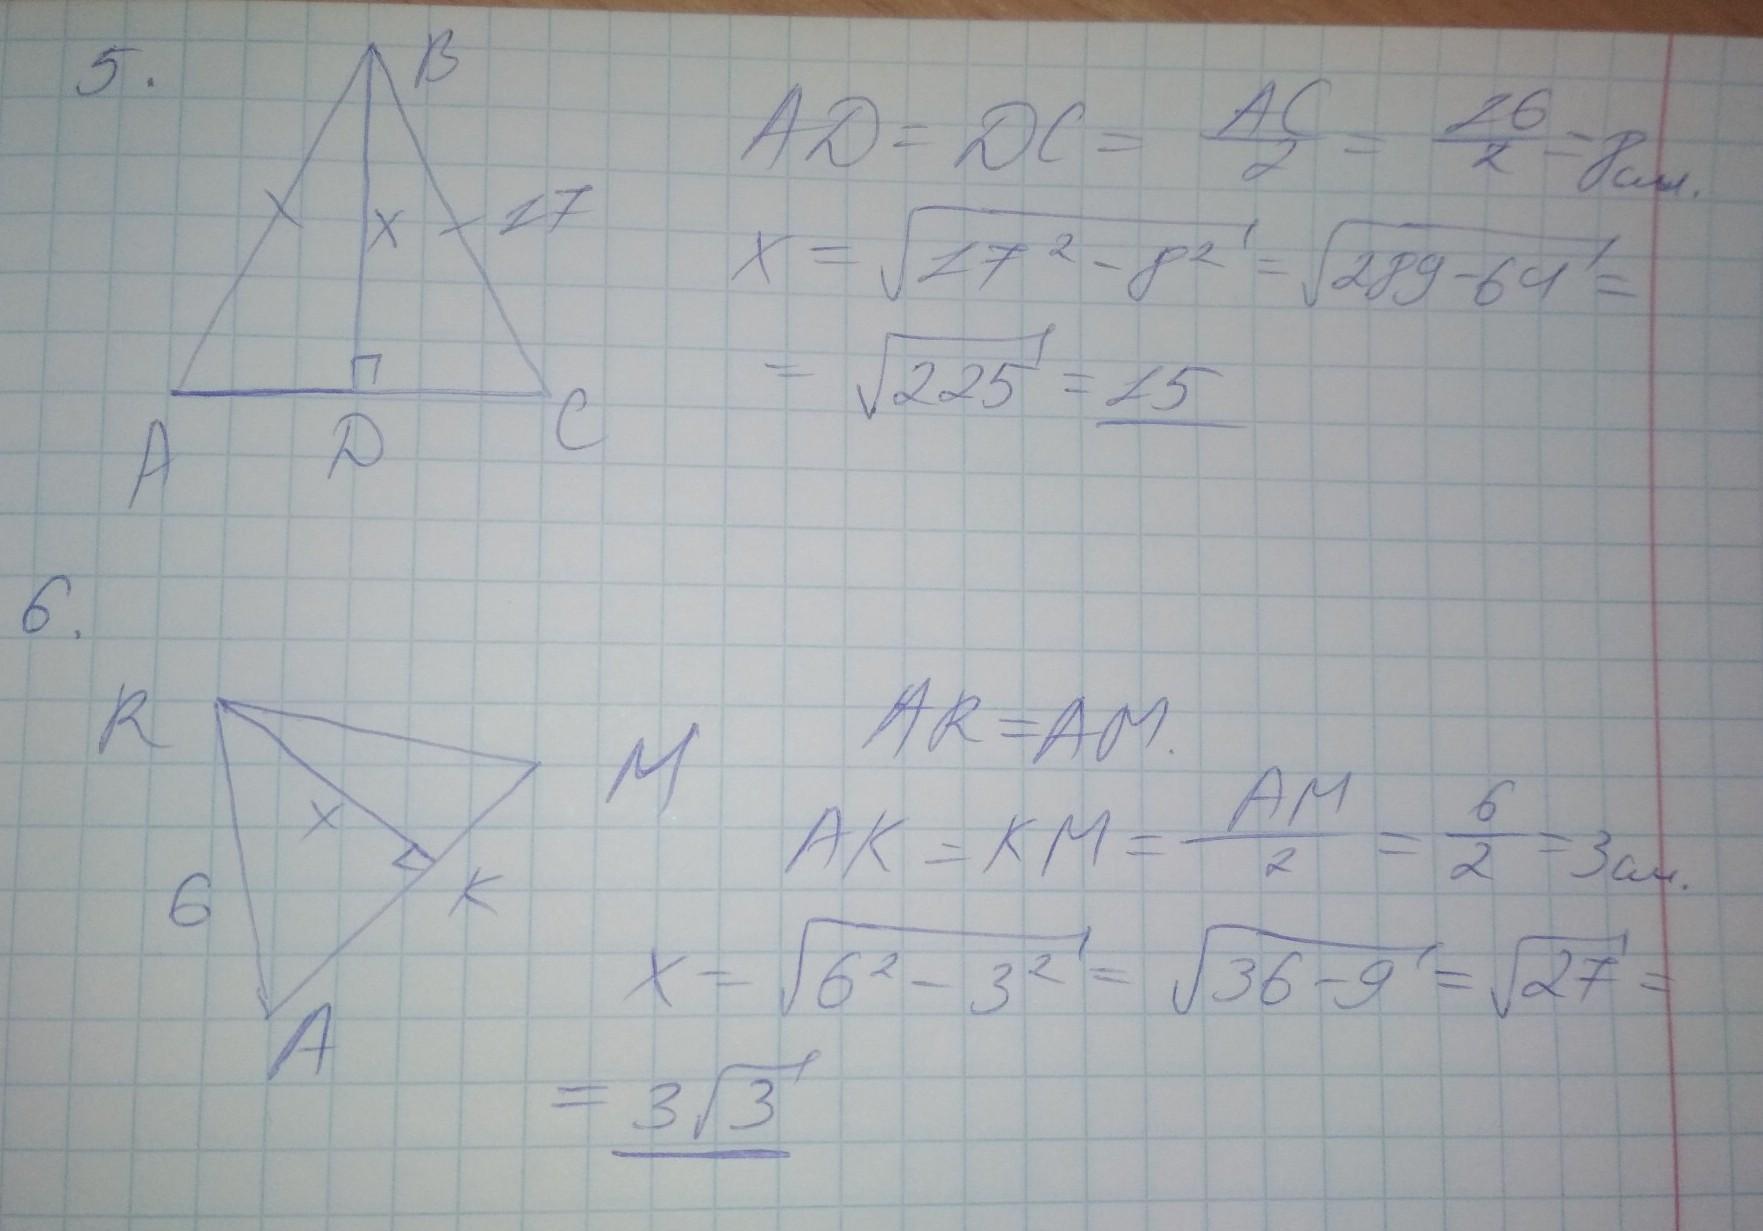 5.
B
x
x
17
A
D
C
AD = DC = AC/2 = 16/2 = 8см.
x = √17² - 8² = √289-64 =
= √225 = 15
6.
R
M
x
6
K
A
AR = AM.
AK = KM = AM/2 = 6/2 = 3см.
x = √6² - 3² = √36-9 = √27 =
= 3√3